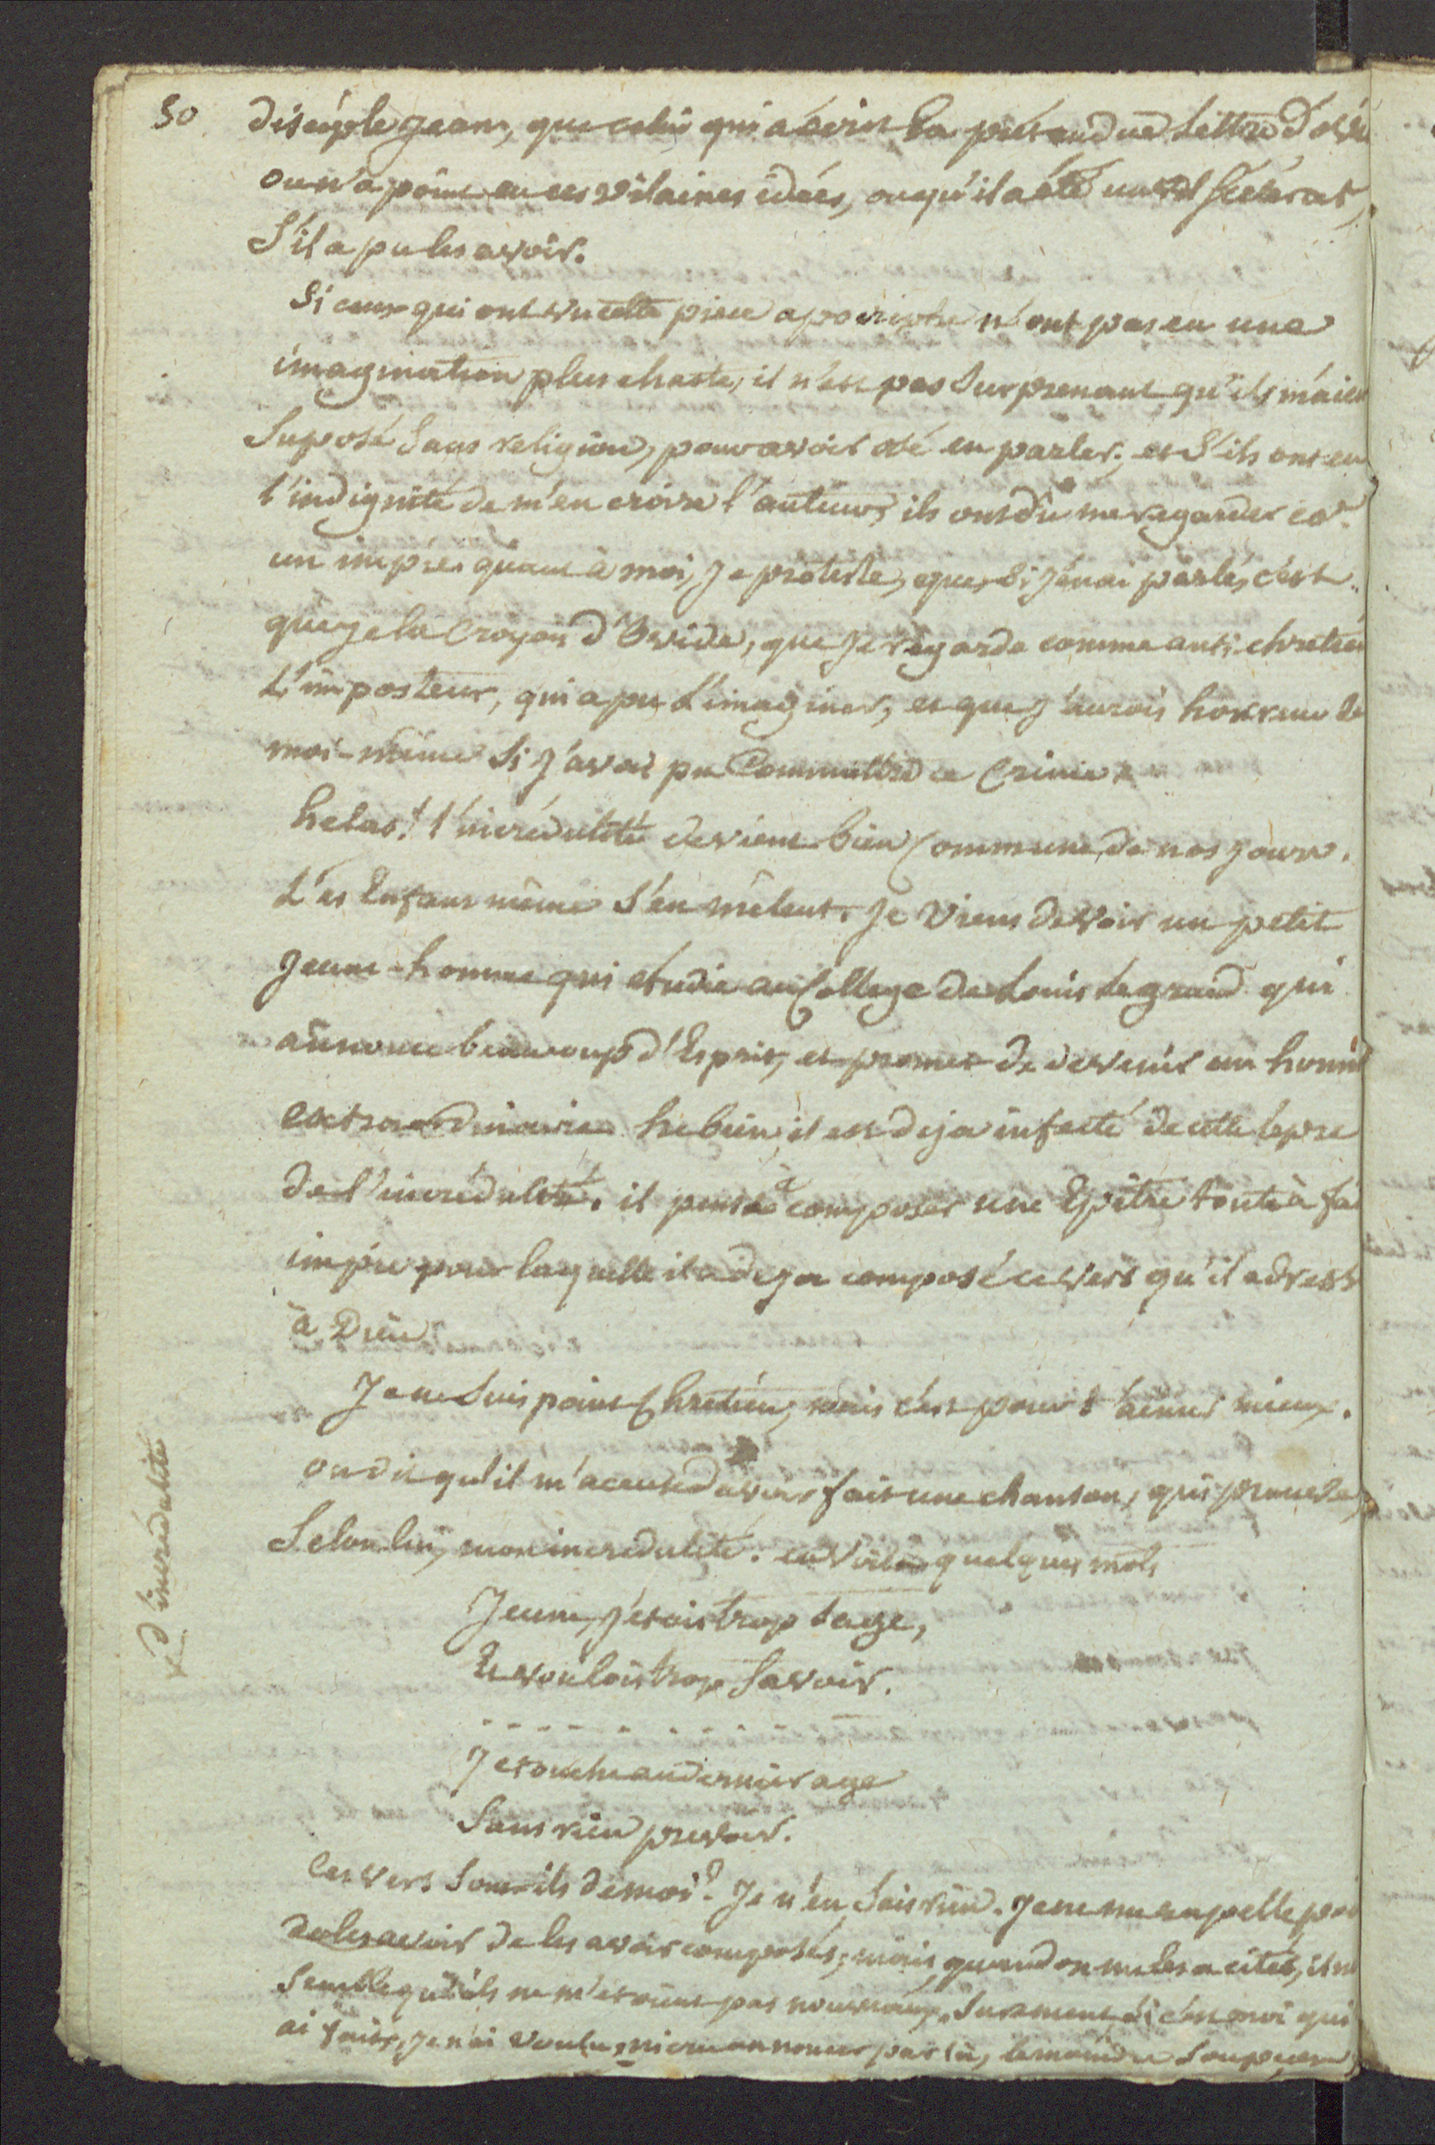 50 disciple Jean, que celui qui a écrit la prétendue Lettre d'ovi
ou n'a point eu ces vilaines idées, ou qu'il a été un vil scélérat,
S'il a pu les avoir.
Si ceux qui ont vu cette piece apocriphe n'ont pas eu une
imagination plus chaste, il n'est pas surprenant qu'ils m'aien
Suposé Sans religion, pour avoir osé en parler; et S'ils ont eu
l'indignité de m'en croire l'auteur, ils ont dû me regarder co.e
un impie. quant à moi, Je proteste, que, Si J'en ai parlé, c'est
que Je la Croyois d'Ovide, que Je regarde comme anti-chretien
L'imposteur, qui a pu L'imaginer, et que J'aurois horreur de
moi-même Si J'avois pu Commettre ce Crime.
helas! l'incrédulité devient bien Commune de nos Jours.
Les Enfans même S'en mêlent. Je Viens de voir un petit
Jeune-homme qui etudie au College de Louis Le grand qui
annonce beaucoup d'Esprit, et promet de devenir un homm
extraordinaire. he bien, il est deja infecté de cette lèpre
de l'incrédulité. il pense à composer une Epître tout à fai
impie pour laquelle il a deja composé ce vers qu'il adress
à Dieu
Je ne Suis point Chretien, mais c'est pour t'aimer mieux.
on dit qu'il m'accuse d'avoir fait une chanson, qui prouve,
Selon lui, mon incredulité. en Voila quelques mots
Jeune, J'etois trop sage,
Et voulois trop Savoir.
- - - - - - - - - -
Je touche au dernier age
Sans rien prevoir.
Ces vers Sont-ils de moi? Je n'en Sais rien. Je ne me rapelle poi
de les avoir de les avoir composés; mais, quand on me les a cités, il m
Semble qu'ils ne m'etoient pas nouveaux. Surement Si c'est moi qui
ai faits, Je n'ai voulu, ni annoncer par là, le moindre Soupçon
d'incrédulité